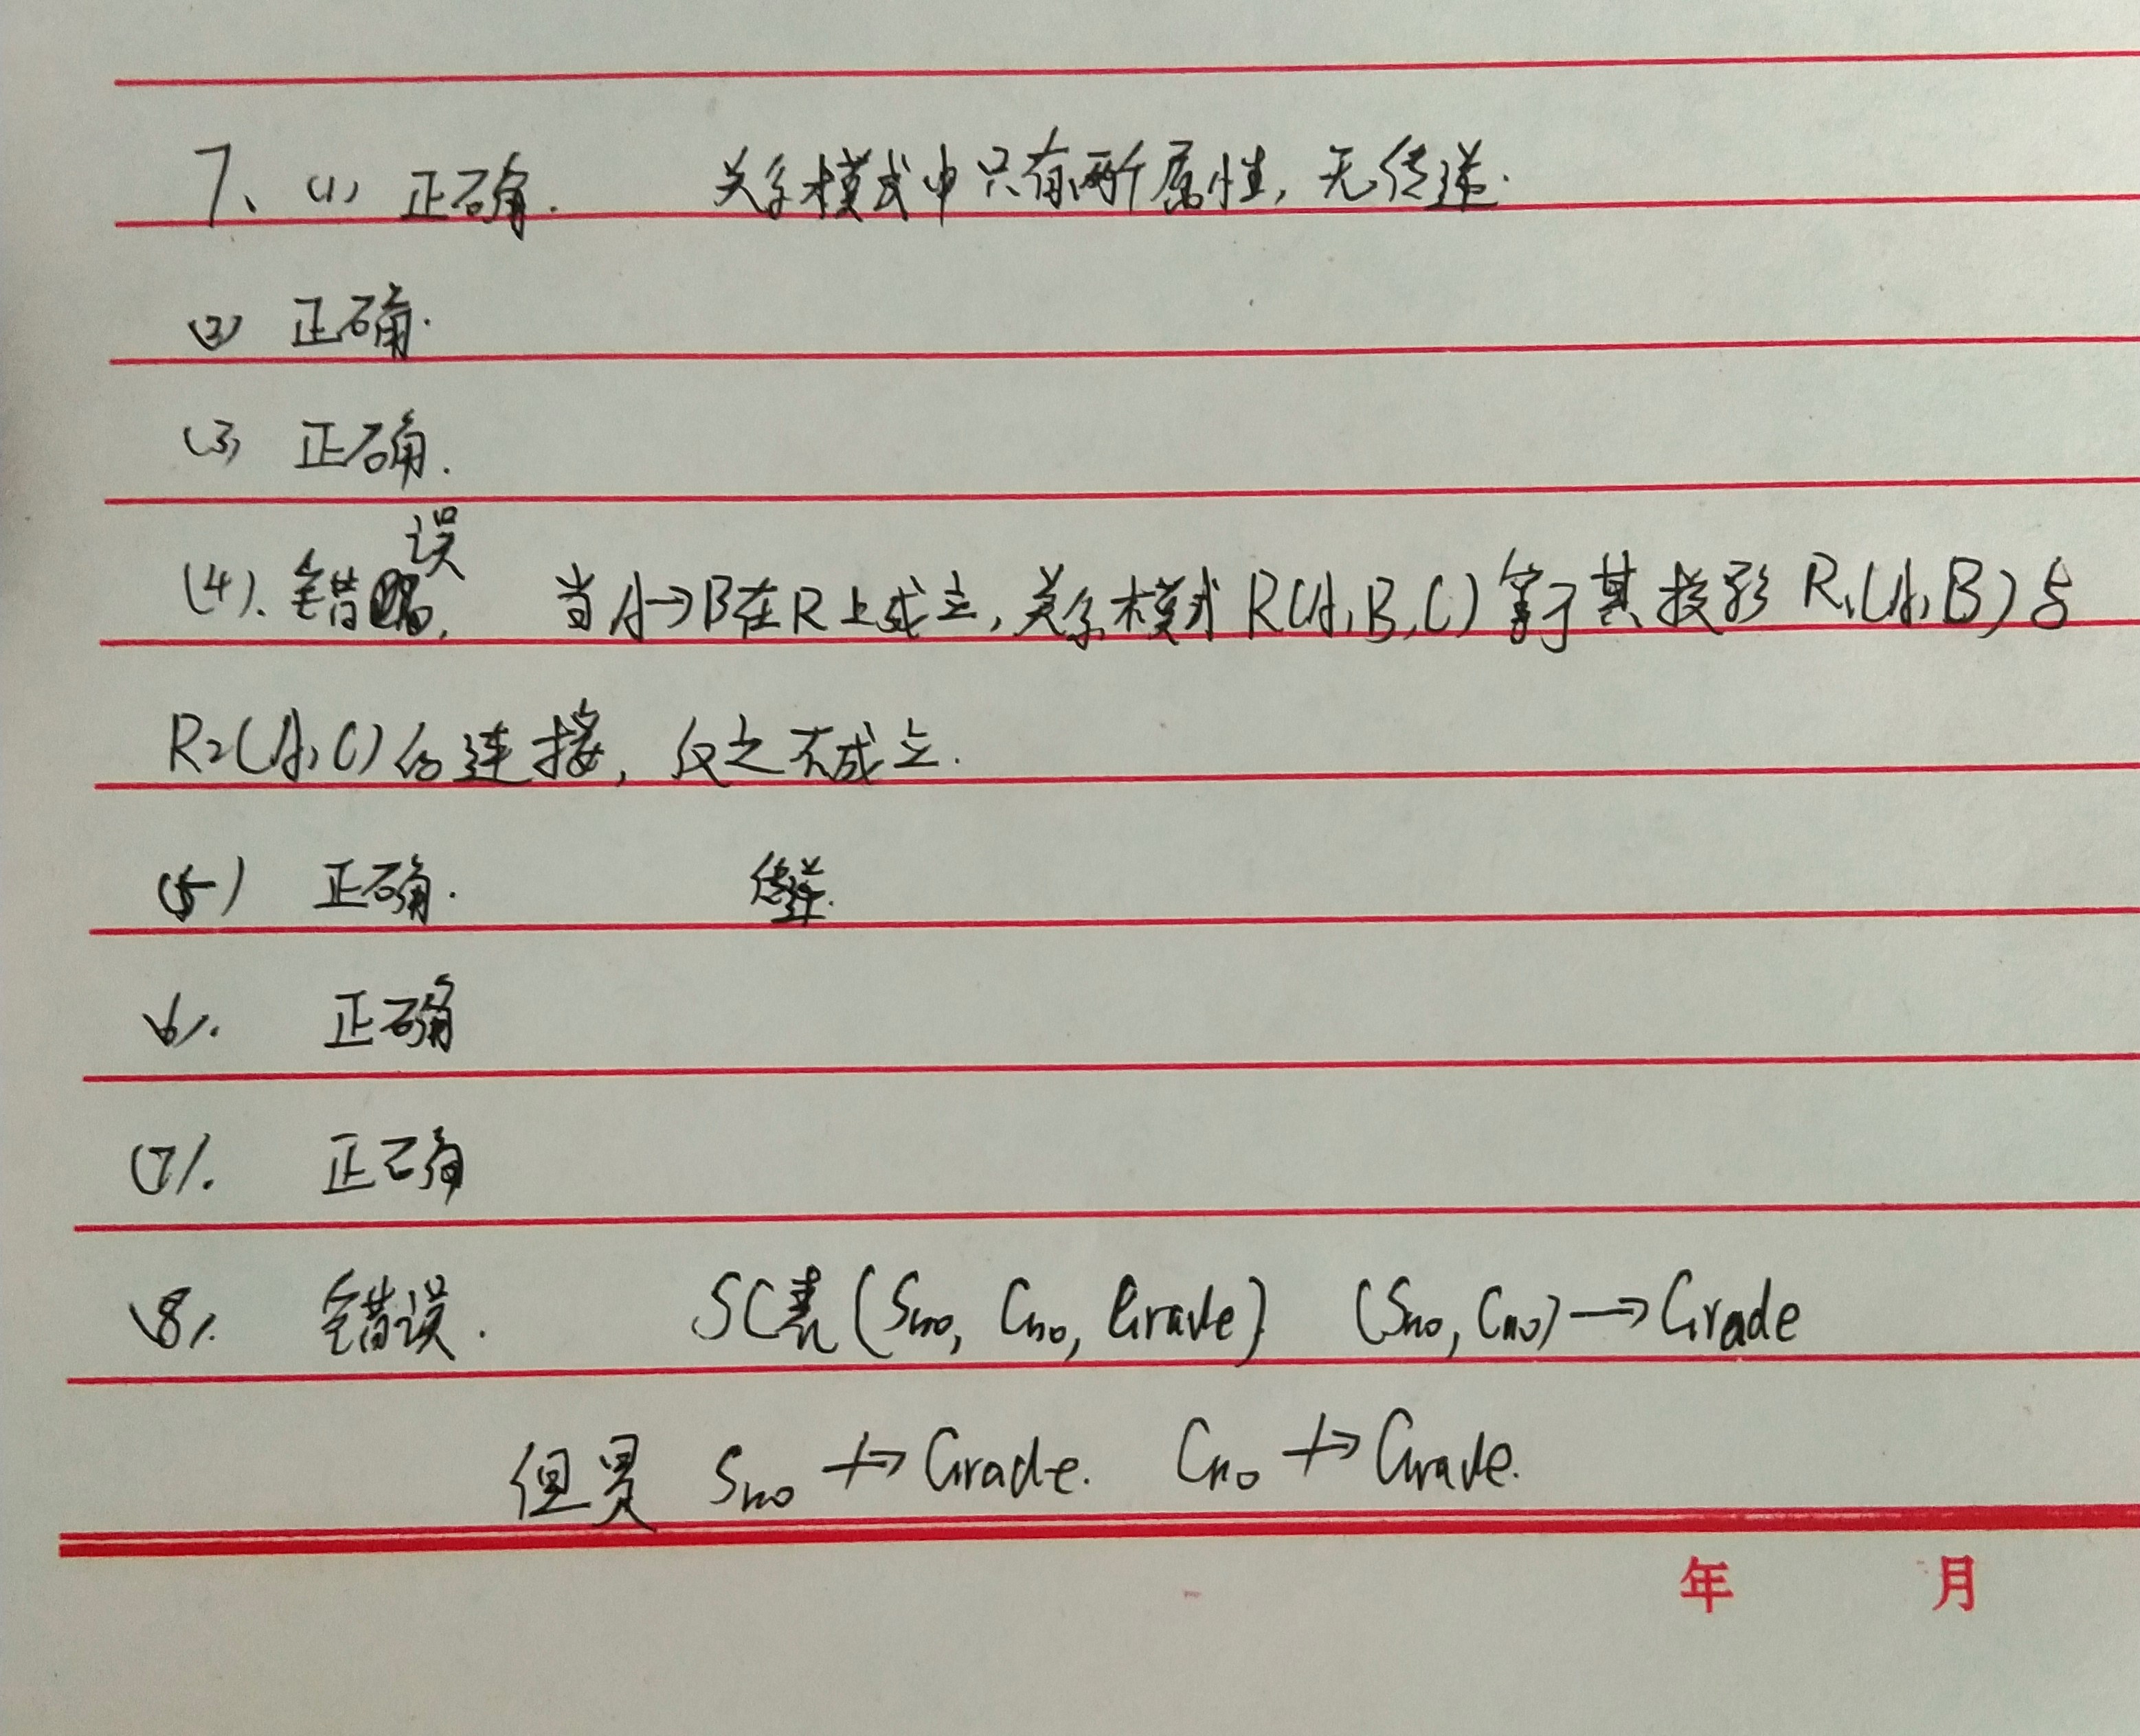 7、(1) 正确. 关系模式中只有两个属性, 无传递.
(2) 正确.
(3) 正确.
(4). 错误. 当A→B在R上成立, 关系模式 R(A,B,C) 等于其投影 R₁(A,B)与
R₂(A,C)的连接, 反之不成立.
(5) 正确. 传递.
(6). 正确
(7). 正确
(8). 错误. SC表(Sno, Cno, Grade) (Sno, Cno)→Grade
但是 Sno ↛ Grade. Cno ↛ Grade.
年 月